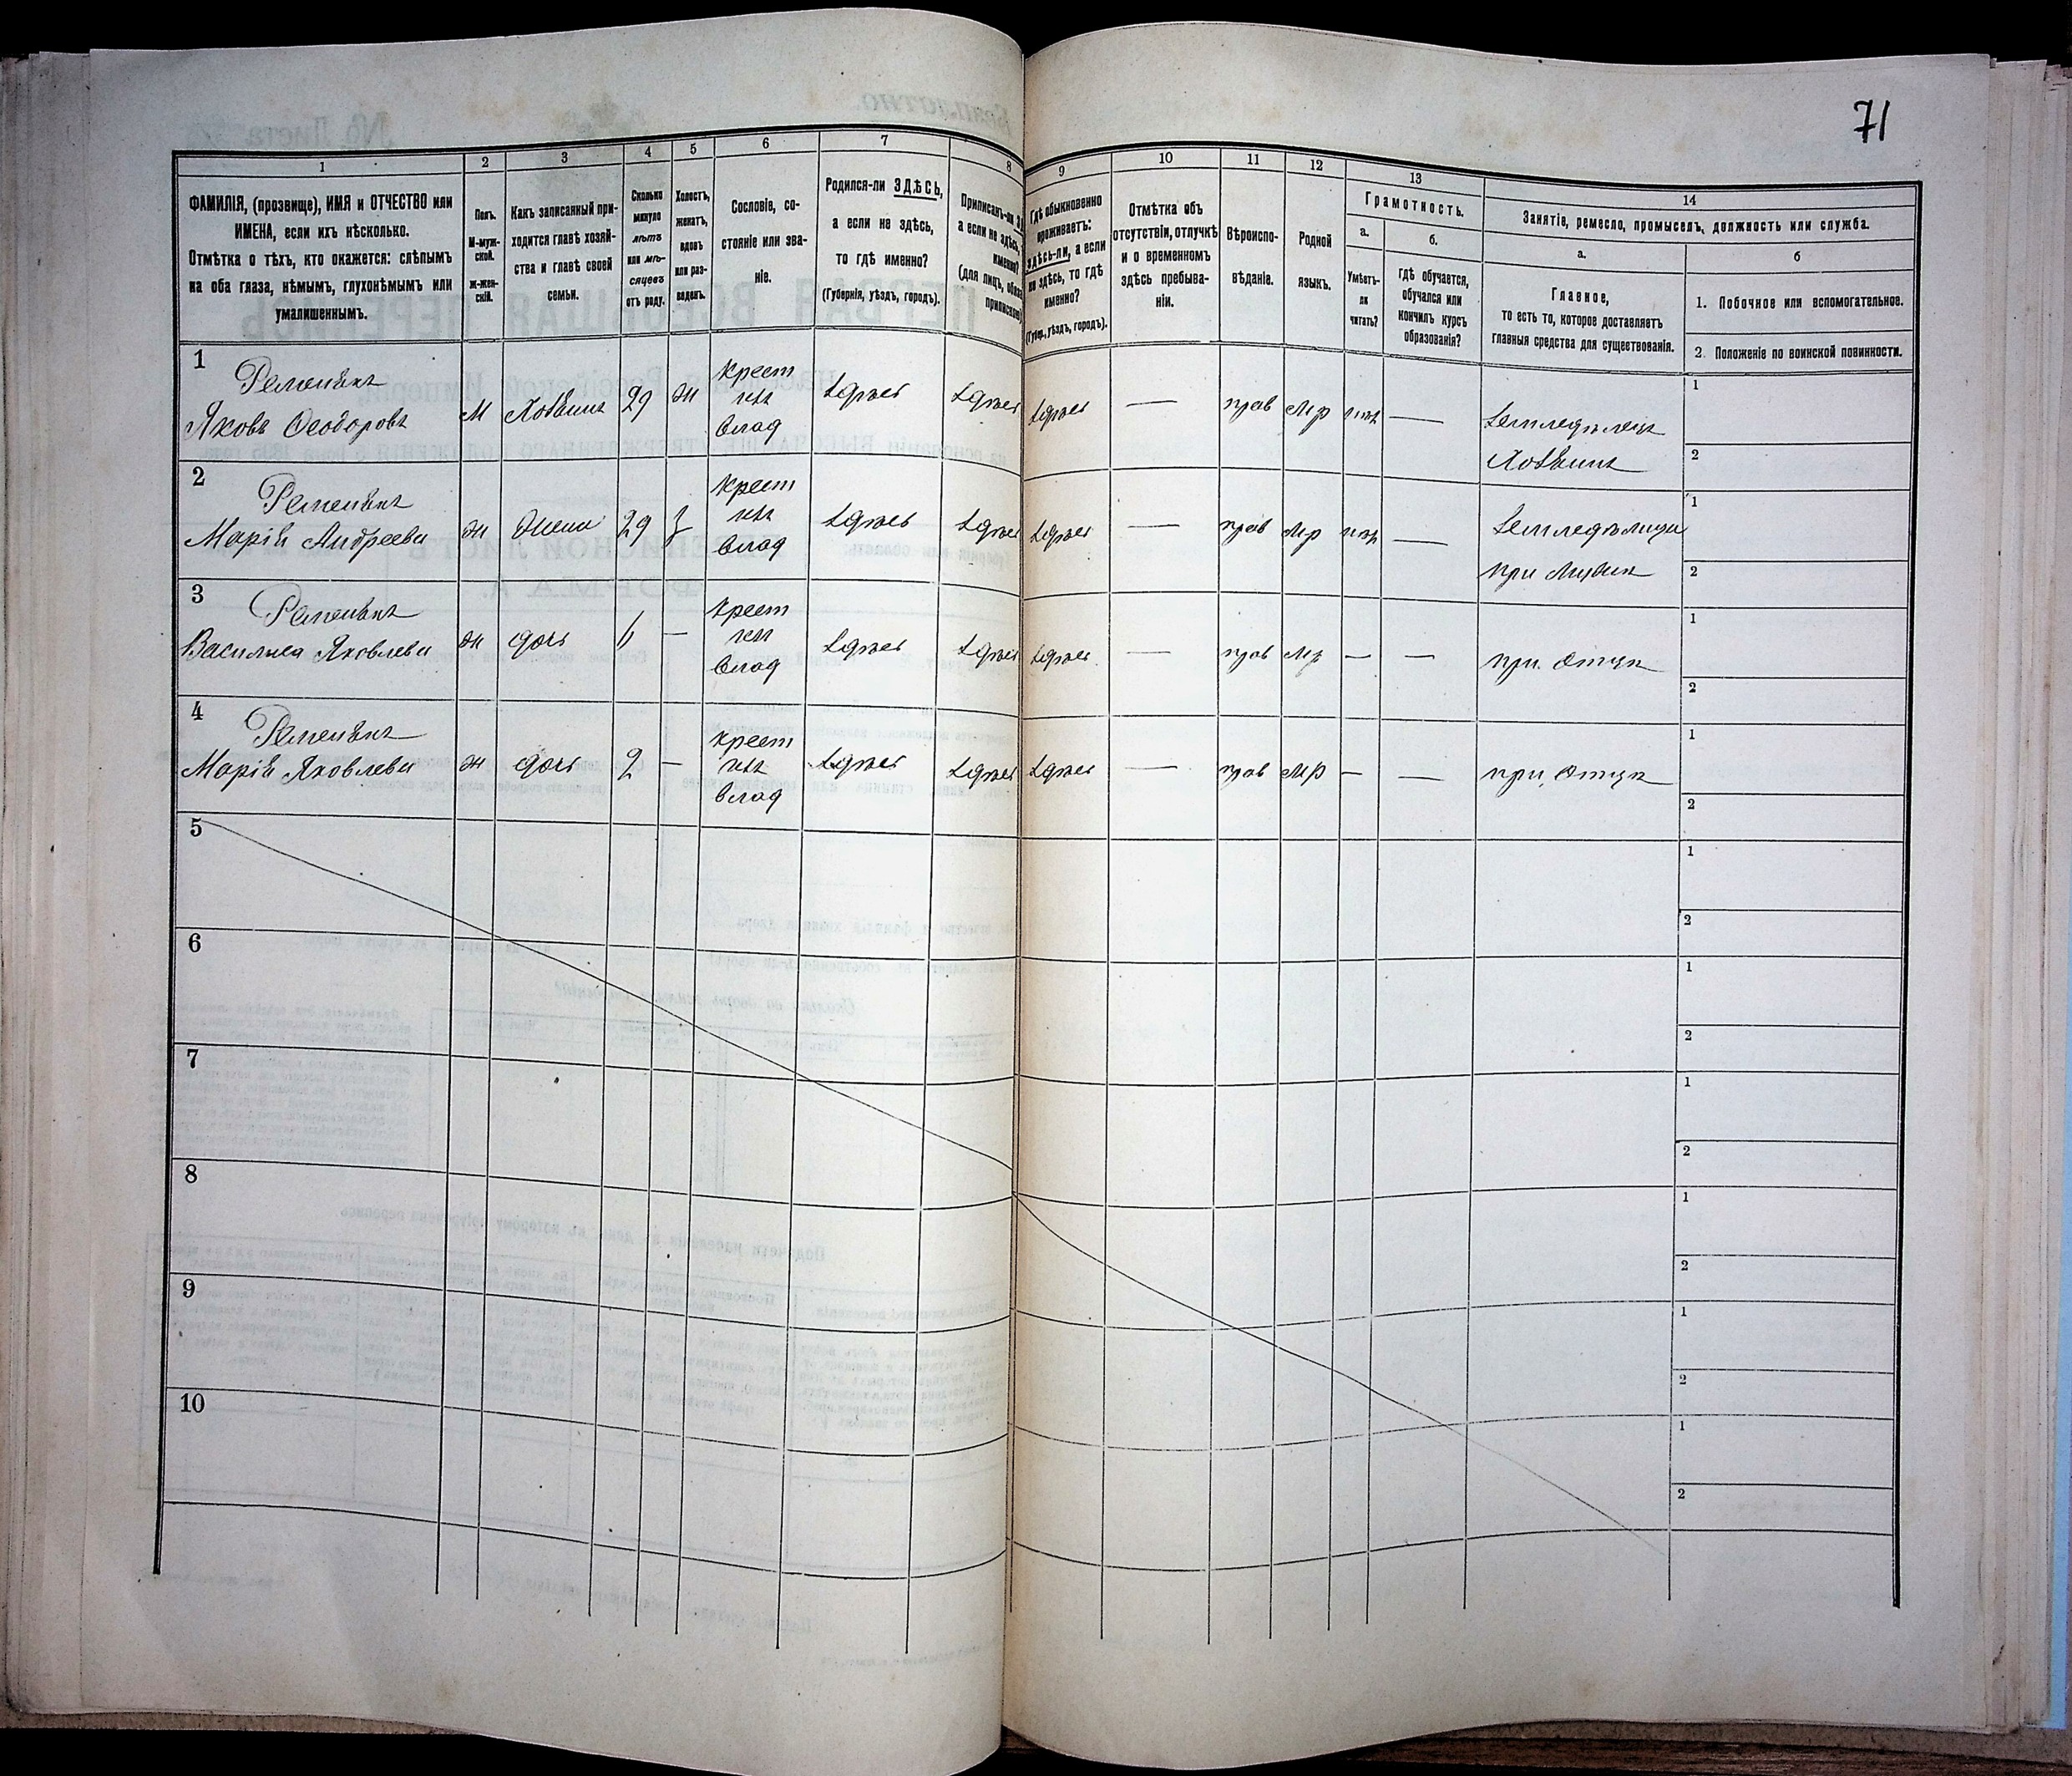 71
1
2
3
4
5
6
7
8
9
10
11
12
13
14
ФАМИЛІЯ, (прозвище), ИМЯ и ОТЧЕСТВО или
ИМЕНА, если ихъ нѣсколько.
Отмѣтка о тѣхъ, кто окажется: слѣпымъ
на оба глаза, нѣмымъ, глухонѣмымъ или
умалишеннымъ.
Полъ.
М-муж-
ской.
ж-жен-
скій.
Какъ записанный при-
ходится главѣ хозяй-
ства и главѣ своей
семьи.
Сколько
минуло
лѣтъ
или мѣ-
сяцевъ
отъ роду.
Холостъ,
женатъ,
вдовъ
или раз-
веденъ.
Сословіе, со-
стояніе или зва-
ніе.
Родился-ли ЗДѢСЬ,
а если не здѣсь,
то гдѣ именно?
(Губернія, уѣздъ, городъ).
Приписанъ-ли
а если не здѣсь,
именно?
(для лицъ,
Гдѣ обыкновенно
проживаетъ:
здѣсь-ли, а если
не здѣсь, то гдѣ
именно?
(Губер., уѣздъ, городъ).
Отмѣтка объ
отсутствіи, отлучкѣ
и о временномъ
здѣсь пребыва-
ніи.
Вѣроиспо-
вѣданіе.
Родной
языкъ.
Грамотность.
а.
Умѣетъ-
ли
читать?
б.
гдѣ обучается,
обучался или
кончилъ курсъ
образованія?
Занятіе, ремесло, промыселъ, должность или служба.
а.
Главное,
то есть то, которое доставляетъ
главныя средства для существованія.
б
1. Побочное или вспомогательное.
2. Положеніе по воинской повинности.
1
Яковъ Ѳеодоровъ
М
Хозяинъ
29
ж
крест
влад
здѣсь
здѣсь
здѣсь
—
прав
Мр
нѣт
—
Земледѣлецъ
Хозяинъ
1
2
2
Марія Андреева
ж
жена
29
з
крест
влад
здѣсь
здѣсь
здѣсь
—
прав
Мр
нѣт
—
Земледѣлица
при
1
2
3
Василиса Яковлева
ж
дочь
—
крест
влад
здѣсь
здѣсь
здѣсь
—
прав
Мр
—
—
при отцѣ
1
2
4
Марія Яковлева
ж
дочь
2
—
крест
влад
здѣсь
здѣсь
здѣсь
—
прав
Мр
—
—
при отцѣ
1
2
5
1
2
6
1
2
7
1
2
8
1
2
9
1
2
10
1
2